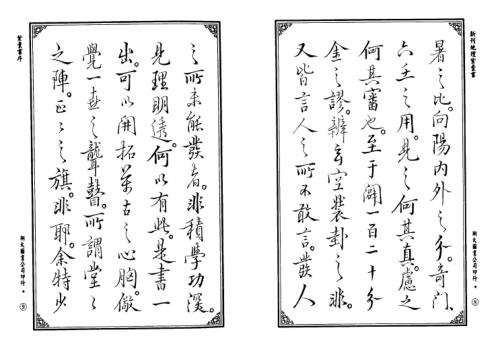 新刊地理紫囊書
暑之比。向陽內外之分。奇門
六壬之用。見之何其真。慮之
何其審也。至于闢一百二十分
金之謬。辨玄空裝卦之非。
又皆言人之所不敢言。發人
翔大圖書公司印行
之所未能發者。非積學功深。
見理明透。何以有此。是書一
出。可以開拓萬古之心胸。儆
覺一世之聾瞽。所謂堂〻
之陣。正〻之旗。非耶。余特少
紫囊書序
翔大圖書公司印行